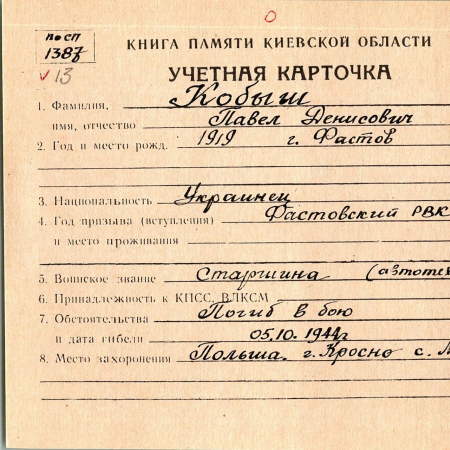 О
по сп
1387
v 13
КНИГА ПАМЯТИ КИЕВСКОЙ ОБЛАСТИ
УЧЕТНАЯ КАРТОЧКА
1. Фамилия, Кобыш
имя, отчество Павел Денисович
2. Год и место рожд. 1919 г. Фастов
3. Национальность Украинец
4. Год призыва (вступления) Фастовский РВК
и место проживания
5. Воинское звание Старшина
6. Принадлежность к КПСС, ВЛКСМ
7. Обстоятельства Погиб в бою
и дата гибели 05.10.1944г
8. Место захоронения Польша. г. Кросно с.